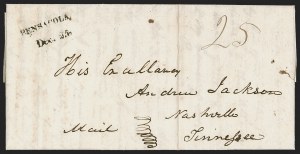 PENSACOLA
Dec. 25
25
His Excellency
Andrew Jackson
Nashville
Mail
Tennessee